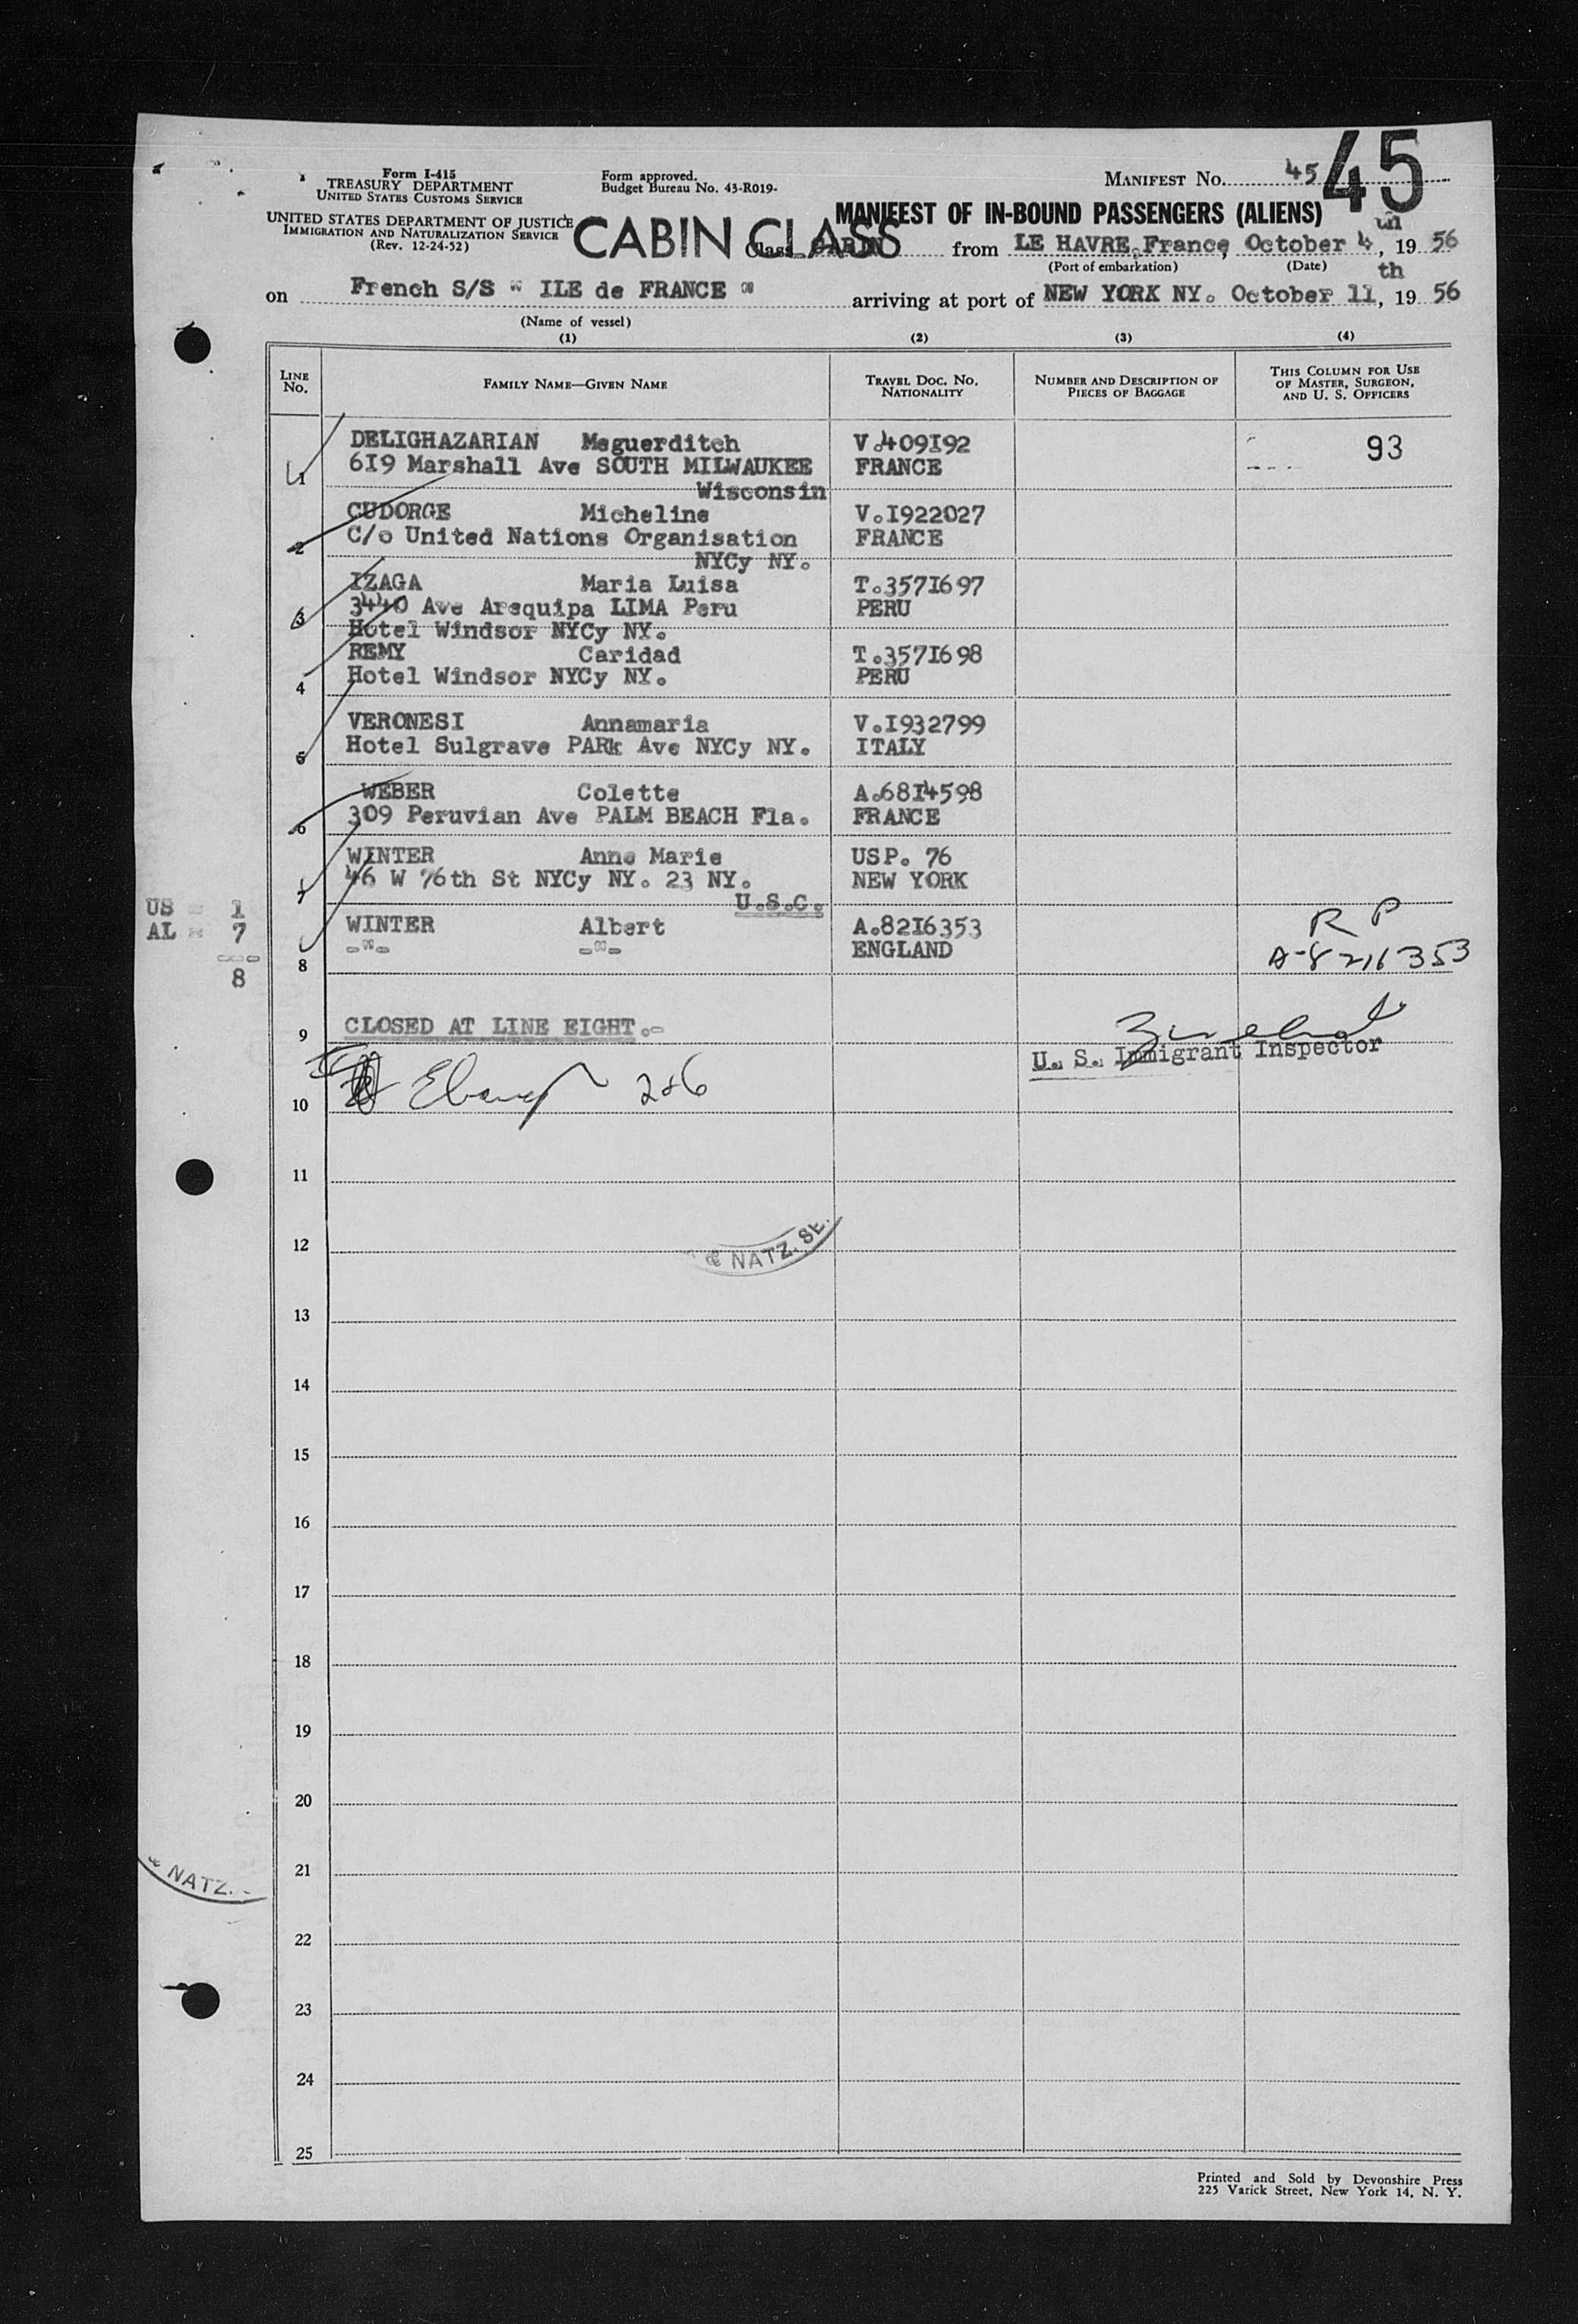 Form I-415
TREASURY DEPARTMENT
UNITED STATES CUSTOMS SERVICE
UNITED STATES DEPARTMENT OF JUSTICE
IMMIGRATION AND NATURALIZATION SERVICE
(Rev. 12-24-52)
Form approved.
Budget Bureau No. 43-R019-
MANIFEST No. 45 45
MANIFEST OF IN-BOUND PASSENGERS (ALIENS)
CABIN CLASS
Class CABIN from LE HAVRE, France, October 4 th, 19 56
(Port of embarkation) (Date)
on French S/S " ILE de FRANCE " arriving at port of NEW YORK NY. October 11 th, 19 56
(Name of vessel)
(1) (2) (3) (4)
LINE No. FAMILY NAME—GIVEN NAME TRAVEL DOC. No. NATIONALITY NUMBER AND DESCRIPTION OF PIECES OF BAGGAGE THIS COLUMN FOR USE OF MASTER, SURGEON, AND U. S. OFFICERS
1 DELIGHAZARIAN Meguerditch V.409I92 93
6I9 Marshall Ave SOUTH MILWAUKEE FRANCE
Wisconsin
2 CUDORGE Micheline V.I922027
C/o United Nations Organisation FRANCE
NYCy NY.
3 IZAGA Maria Luisa T.357I697
3440 Ave Arequipa LIMA Peru PERU
Hotel Windsor NYCy NY.
4 REMY Caridad T.357I698
Hotel Windsor NYCy NY. PERU
5 VERONESI Annamaria V.I932799
Hotel Sulgrave PARk Ave NYCy NY. ITALY
6 WEBER Colette A.68I4598
309 Peruvian Ave PALM BEACH Fla. FRANCE
7 WINTER Anne Marie USP. 76
46 W 76th St NYCy NY. 23 NY. NEW YORK
U.S.C.
US = 1
AL = 7
---
8
8 WINTER Albert A.82I6353 R P
-"- -"- ENGLAND A-8216353
9 CLOSED AT LINE EIGHT.-
U. S. Immigrant Inspector
10 286
11
12
& NATZ. SE.
13
14
15
16
17
18
19
20
21
& NATZ.
22
23
24
25
Printed and Sold by Devonshire Press
225 Varick Street, New York 14, N. Y.